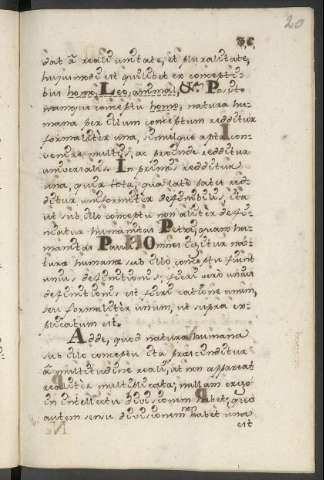 20
dat à reali unitate, et pluralitate,
huiusmodi est quilibet ex concepti-
bus homo, Leo, animal, &c. Posito
namque conceptu homo, natura hu-
mana per illum conceptum redditur
formaliter una, simulque apta con-
venire multis, ac proinde redditur
universalis. In primis redditur
una, quia tota, qua late patet red-
ditur uniformiter definibilis, ita
ut sub illo conceptu non aliter defi-
niatur humanitas Petri, quam hu-
manitas Pauli. Omnes igitur na-
turæ humanæ sub illo conceptu sunt
unius definitionis; fieri vero unius
definitionis est fieri ratione unum,
seu formaliter unum, ut supra ex-
plicatum est.
Adde, quod natura humana
sub illo conceptu ita præscinditur
à multitudine reali, ut non appareat
realiter multiplicata; nullam ergo
in intellectu divisionem habet; quod
autem sensu divisionem non habet unum
est